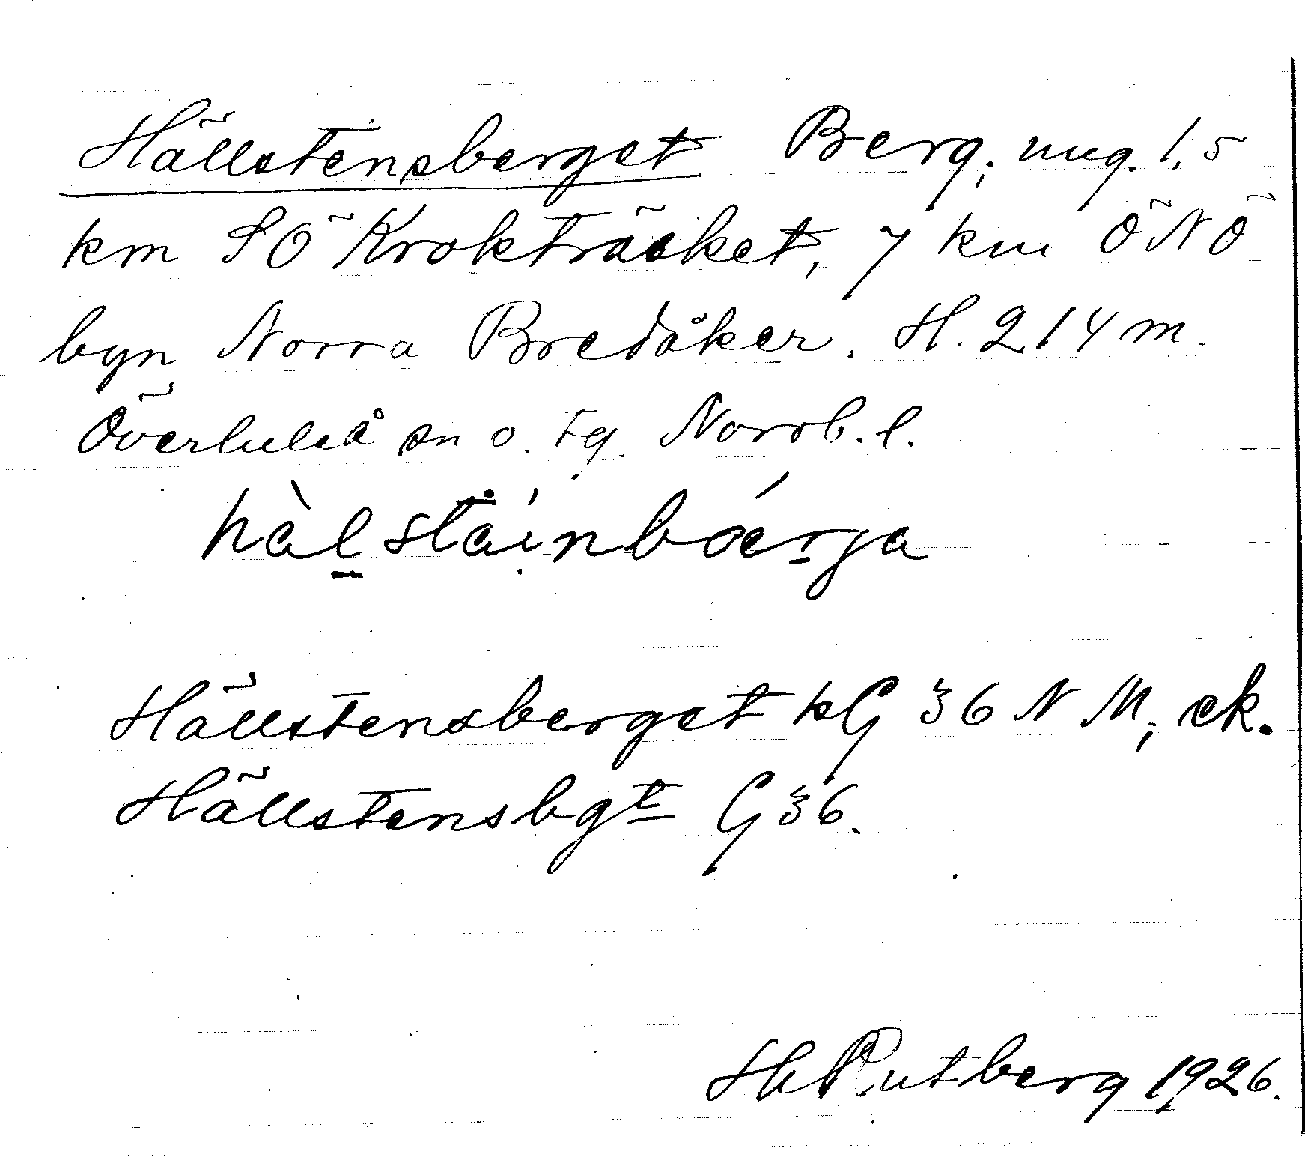 Hällstensberget Berg, ung. 1,5
km SÖ Krokträsket, 7 km ÖNÖ
byn Norra Bredåker. H. 214 m.
Överluleå sn o. tg. Norrb. l.
hàl̠stáinbáerja
Hällstensberget kG 36 N M, ek.
Hällstensbgt G 36.
H Rutberg 1926.